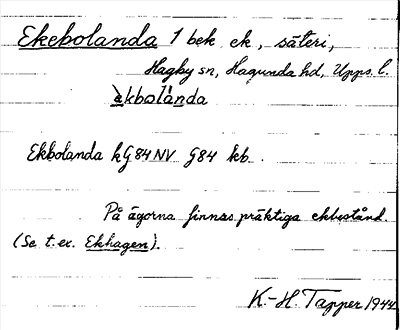 Ekebolanda 1 bek ek, säteri,
Hagby sn, Hagunda hd, Upps. l.
èkbolànda
Ekbolanda hG84NV G84 kb.
På ägorna finnas präktiga ekbestånd.
(Se t.ex. Ekhagen).
K.-H. Tapper 1944